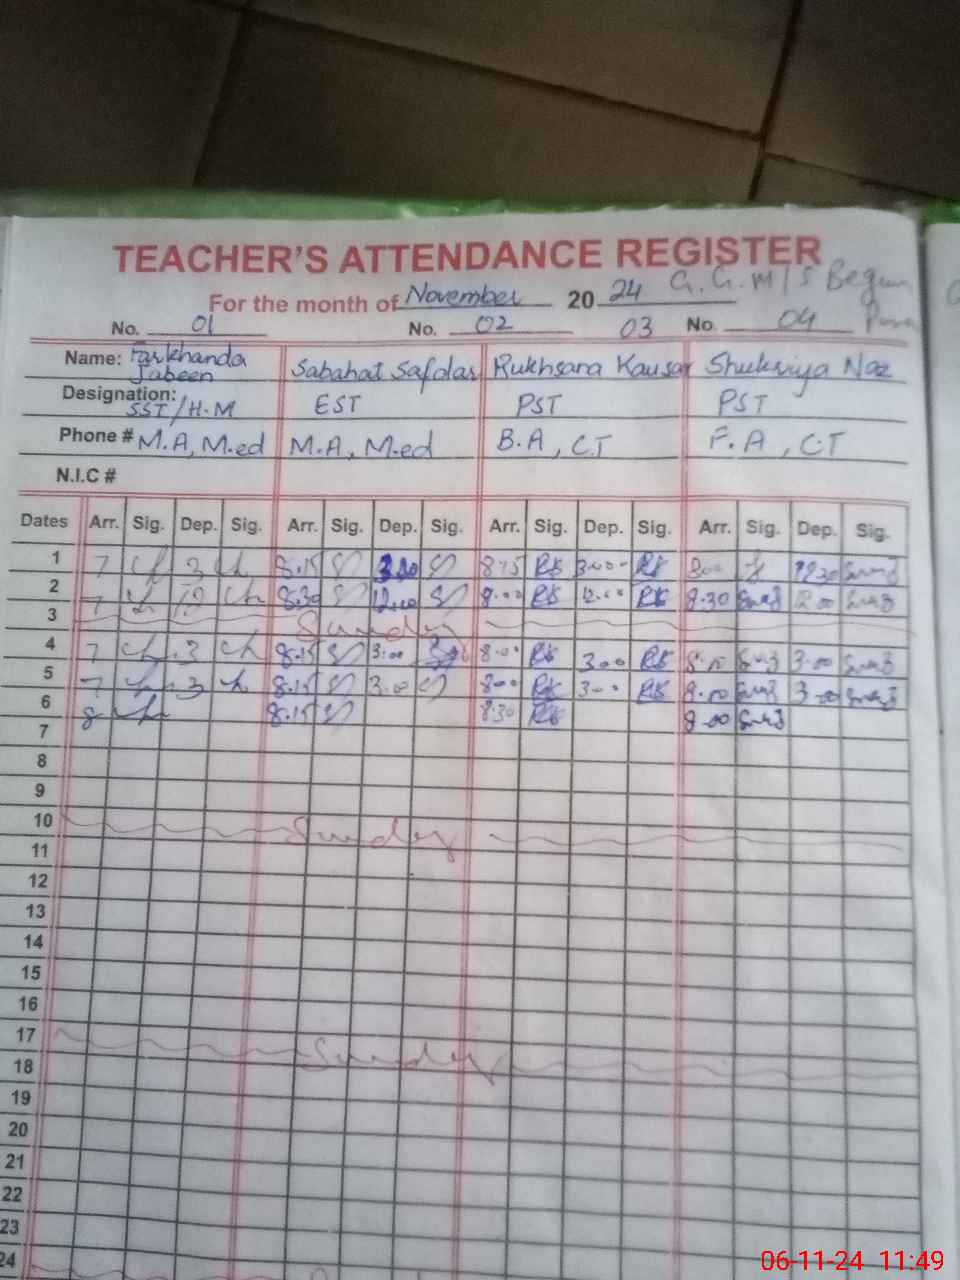 TEACHER'S ATTENDANCE REGISTER
For the month of November 20 24 G.G.M/S Begum
No. 01 No. 02 03 No. 04
Name: Farkhanda Jabeen Sabahat Safdar Rukhsana Kausar Shukriya Naz
Designation: SST/H.M EST PST PST
Phone # M.A, M.ed M.A, M.ed B.A, C.T F.A, C.T
N.I.C #
Dates Arr. Sig. Dep. Sig. Arr. Sig. Dep. Sig. Arr. Sig. Dep. Sig. Arr. Sig. Dep. Sig.
1 7 3 8.15 3.00 8.15 RK 3.00 RK 8.00
2 7 12 8.30 12.00 8.00 RK 12.00 RK 8.30 12.00
3 Sunday
4 7 3 8.15 3.00 8.00 RK 3.00 RK 3.00
5 7 3 8.15 3.00 8.00 RK 3.00 RK 8.00 3.00
6 8 8.15 8.30 RK 8.00
7
8
9
10 Sunday
11
12
13
14
15
16
17 Sunday
18
19
20
21
22
23
24
06-11-24 11:49